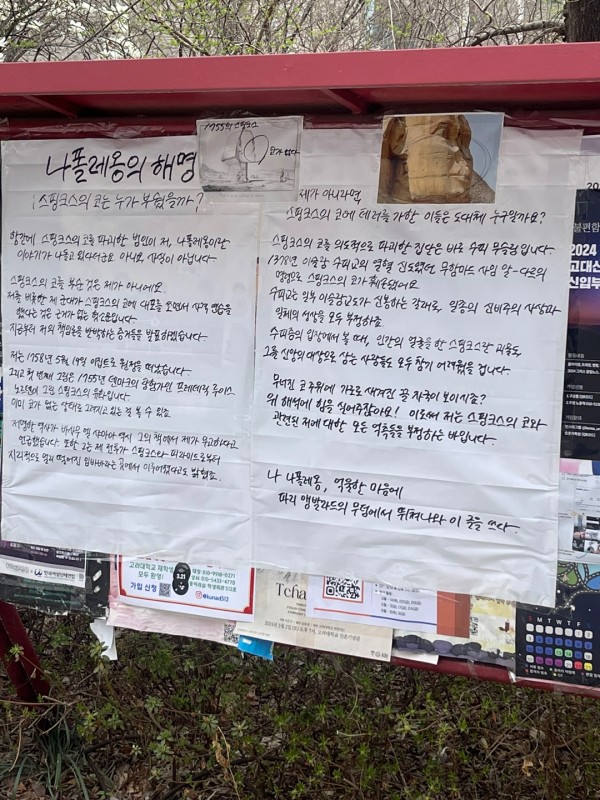 1755의 스핑크스
코가 없다
나폴레옹의 해명
¡스핑크스의 코는 누가 부쉈을까?
항간에 스핑크스의 코를 파괴한 범인이 저, 나폴레옹이란
이야기가 나돌고 있다시군요 아뇨, 사실이 아닙니다.
스핑크스의 코를 부순 것은 제가 아니에요.
저를 비롯한 제 군대가 스핑크스의 코에 대포를 쏘면서 사격 연습을
했다는 것은 근거가 없는 헛소문입니다.
지금부터 저의 책임론을 반박하는 증거들을 발표하겠습니다.
저는 1798년 5월 19일 이집트로 원정을 떠났습니다.
그리고 첫 번째 그림은 1755년 덴마크의 탐험가인 프레데릭 루이스
노르덴이 그린 스핑크스의 그림입니다.
이미 코가 없는 상태로 그려지고 있는 걸 볼 수 있죠
저명한 역사가 바시우 엘 샤마아 역시 그의 책에서 제가 무고하다고
언급했습니다. 또한 그는 제 전투가 스핑크스나 피라미드로부터
지리적으로 멀리 떨어진 임바바라는 곳에서 이루어졌다고도 밝혔죠.
제가 아니라면,
스핑크스의 코에 테러를 가한 이들은 도대체 누구일까요?
스핑크스의 코를 의도적으로 파괴한 집단은 바로 수피 무슬림입니다.
1378년 이슬람 수피교의 열혈 신도였던 무함마드 사임 알-다흐의
명령으로 스핑크스의 코가 훼손되었죠
수피교는 일부 이슬람교도가 신봉하는 갈래로, 일종의 신비주의 사상과
일체의 형상을 모두 부정하죠
수피승의 입장에서 볼 때, 인간의 얼굴을 한 스핑크스란 괴물도,
그를 신앙의 대상으로 삼는 사람들도 모두 참기 어려웠을 겁니다.
무너진 코 주위에 가로로 새겨진 끌 자국이 보이시죠?
위 해석에 힘을 실어주잖아요! 이로써 저는 스핑크스의 코와
관련된 저에 대한 모든 억측들을 부정하는 바입니다.
나 나폴레옹, 억울한 마음에
파리 앵발리드의 무덤에서 뛰쳐나와 이 글을 쓰다.
2024
고대신
신입부
고려대학교 재학생
모두 환영!
가입 신청
3.21
대장 010-9118-0271
@kunad512
Tcha
S M T W T F S